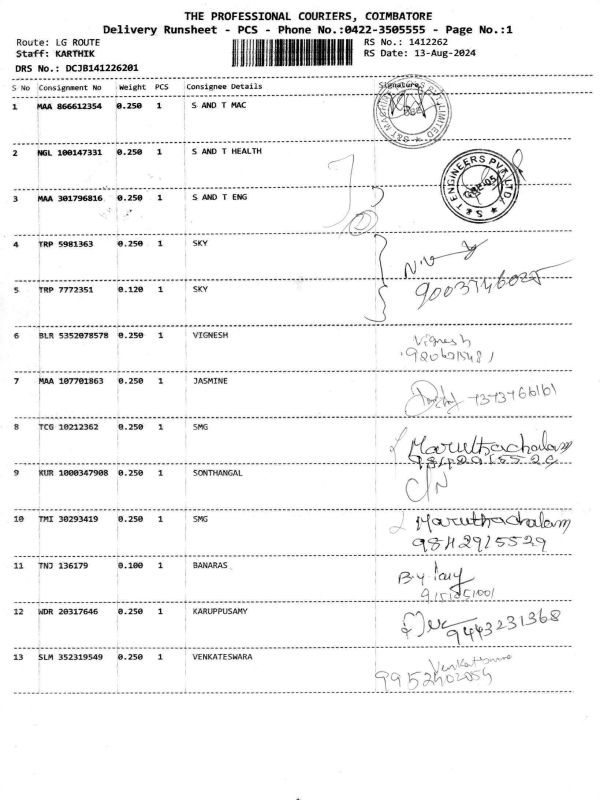 THE PROFESSIONAL COURIERS, COIMBATORE
Delivery Runsheet - PCS - Phone No.:0422-3505555 - Page No.:1
Route: LG ROUTE RS No.: 1412262
Staff: KARTHIK RS Date: 13-Aug-2024
DRS No.: DCJB141226201
S No Consignment No Weight PCS Consignee Details Signature
1 MAA 866612354 0.250 1 S AND T MAC
2 NGL 100147331 0.250 1 S AND T HEALTH
S&T ENGINEERS PVT LTD
3 MAA 301796816 0.250 1 S AND T ENG
4 TRP 5981363 0.250 1 SKY
5 TRP 7772351 0.120 1 SKY
6 BLR 5352078578 0.250 1 VIGNESH Vignesh
7 MAA 107701863 0.250 1 JASMINE 7373766161
8 TCG 10212362 0.250 1 SMG Maruthachalam
9842915529
9 KUR 1000347908 0.250 1 SONTHANGAL C/N
10 TMI 30293419 0.250 1 SMG Maruthachalam
9842915529
11 TNJ 136179 0.100 1 BANARAS
12 WDR 20317646 0.250 1 KARUPPUSAMY
9443231368
13 SLM 352319549 0.250 1 VENKATESWARA Venkateswara
9952402054